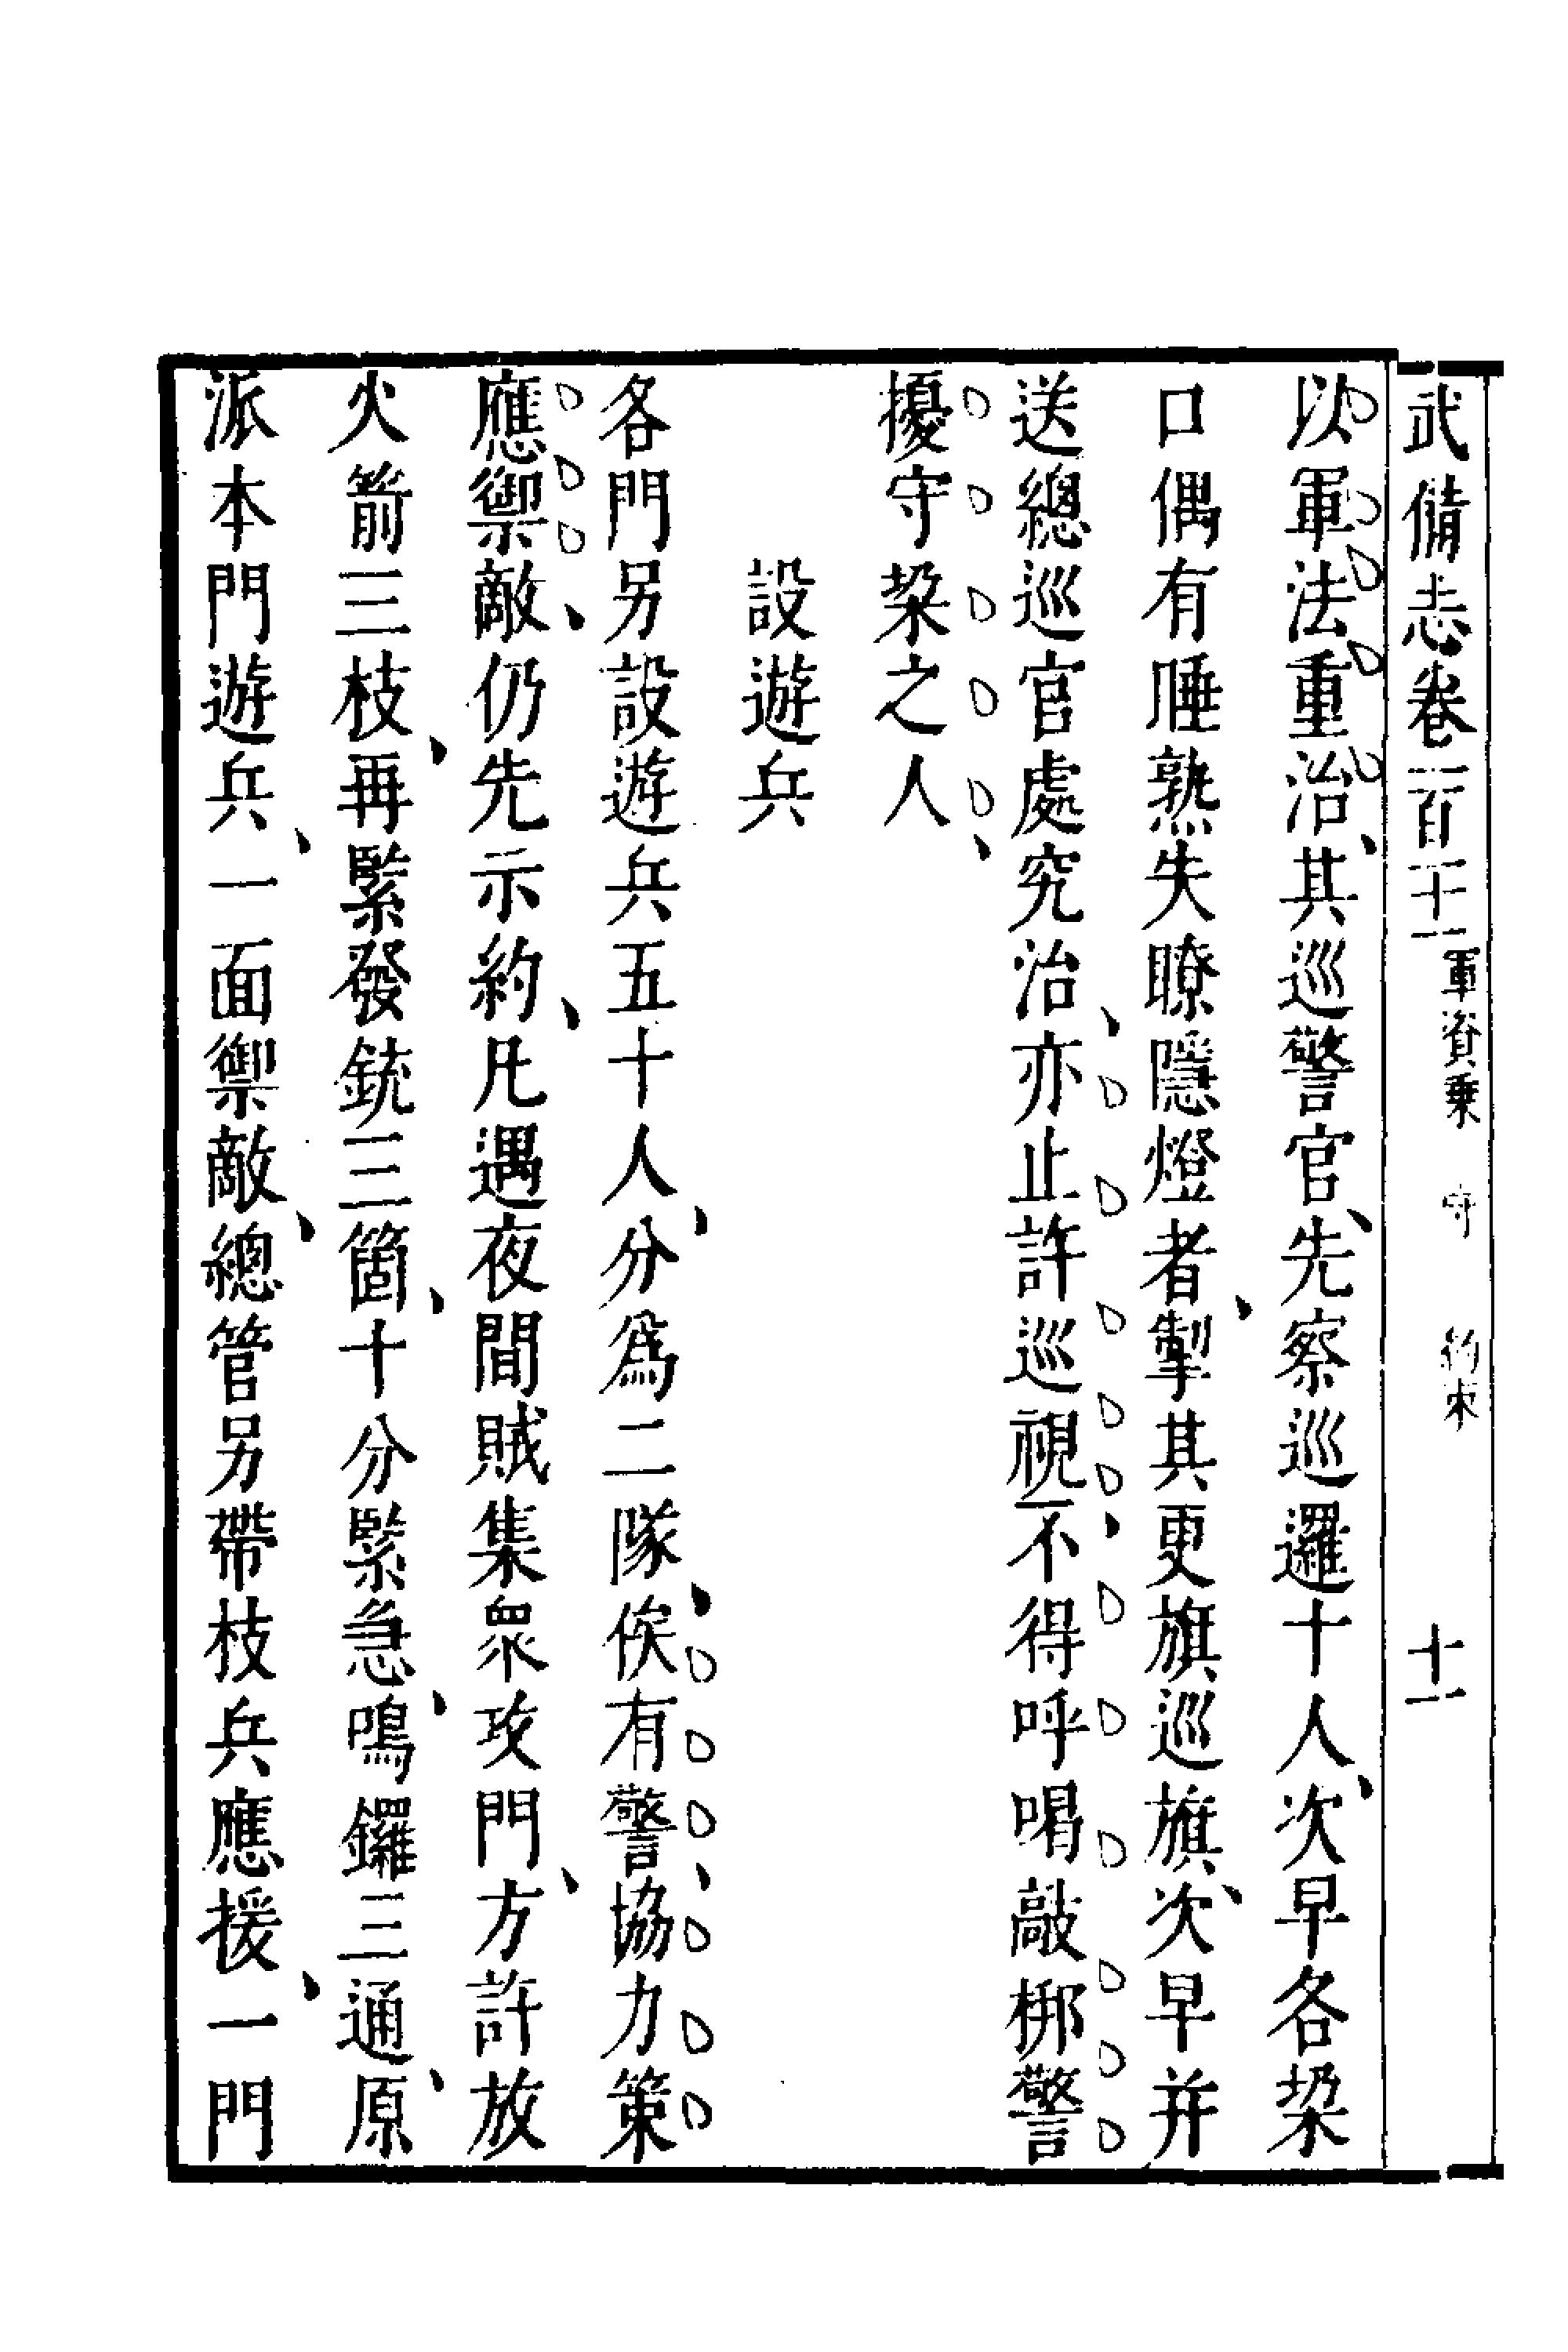 武備志卷一百十一 軍資乗 守 約束 十一
以軍法重治其巡警官先察巡邏十人次早各垜
口偶有睡熟失瞭隱燈者掣其更旗巡旗次早并
送總巡官處究治亦止許巡視不得呼喝敲梆警
擾守垜之人
設遊兵
各門另設遊兵五十人分爲二隊俟有警協力策
應禦敵仍先示約凡遇夜間賊集衆攻門方許放
火箭三枝再緊發銃三箇十分緊急鳴鑼三通原
派本門遊兵一面禦敵總管另帶枝兵應援一門